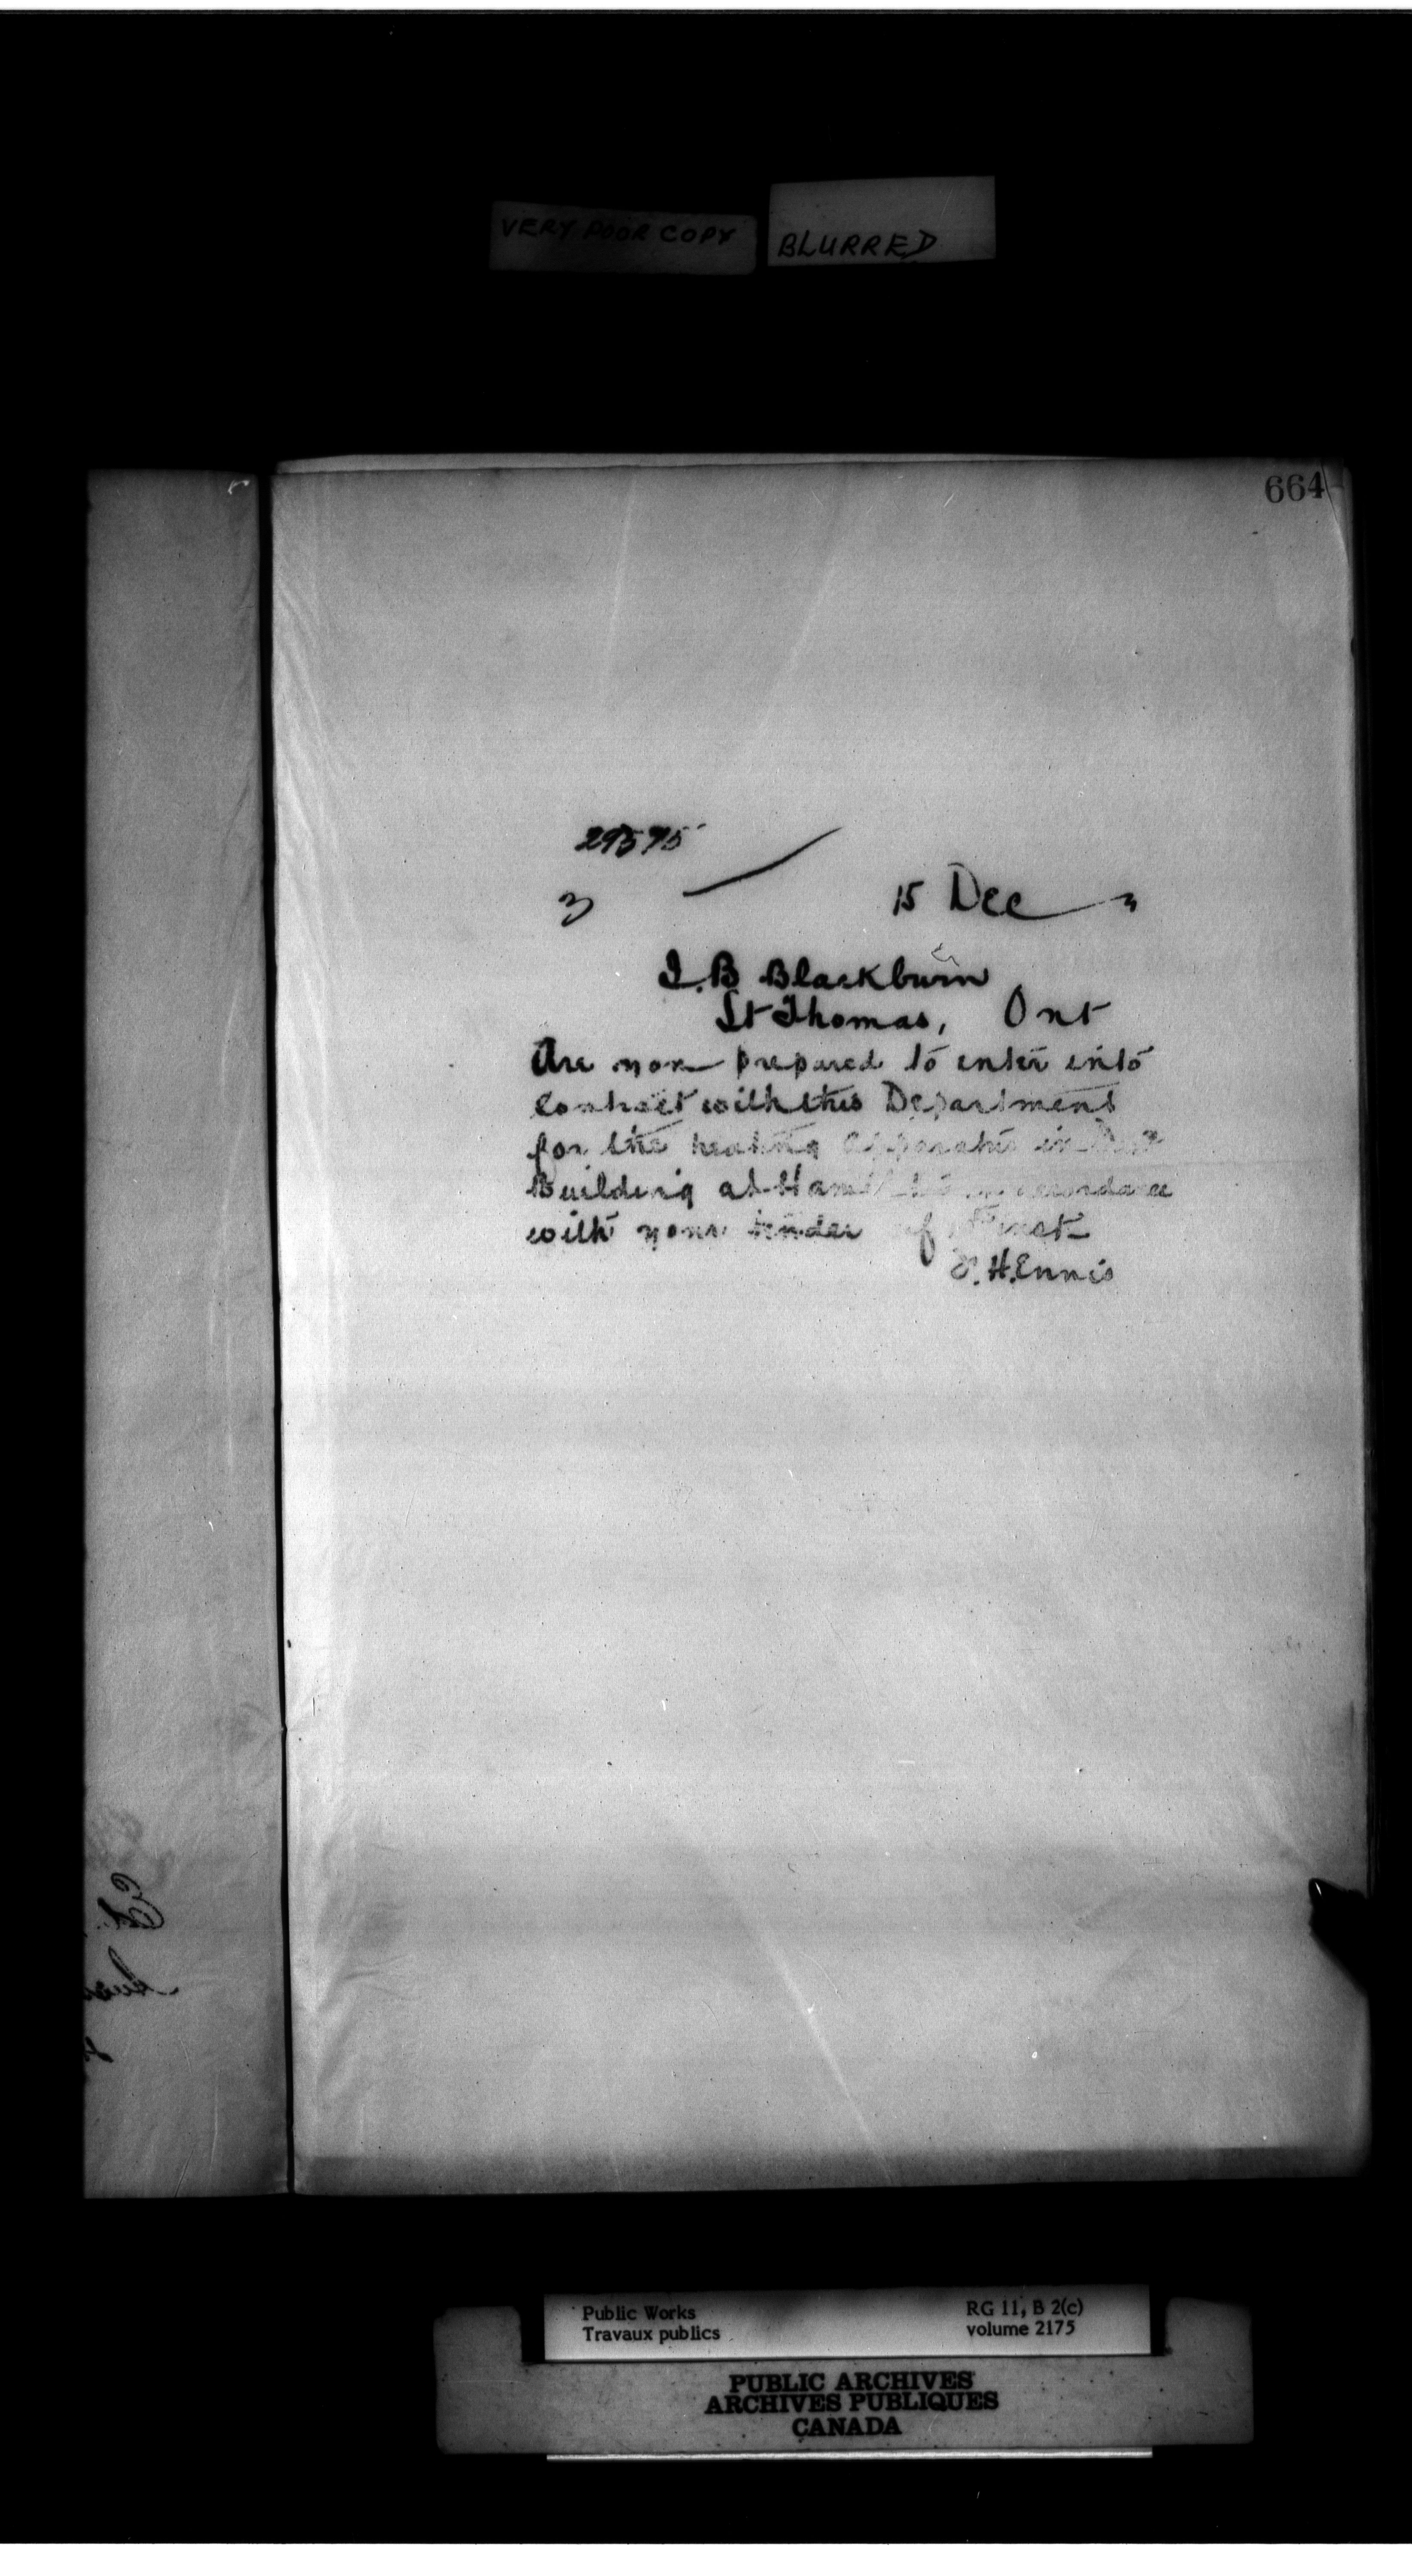 VERY POOR COPY
BLURRED
664
29575
3
15 Dec 3
J.B Blackburn
St Thomas, Ont
Are you prepared to enter into
Contract with this Department
for the heating apparatus in
Building at accordance
with your tender of inst
H. Ennis
Public Works
Travaux publics
RG 11, B 2(c)
volume 2175
PUBLIC ARCHIVES
ARCHIVES PUBLIQUES
CANADA